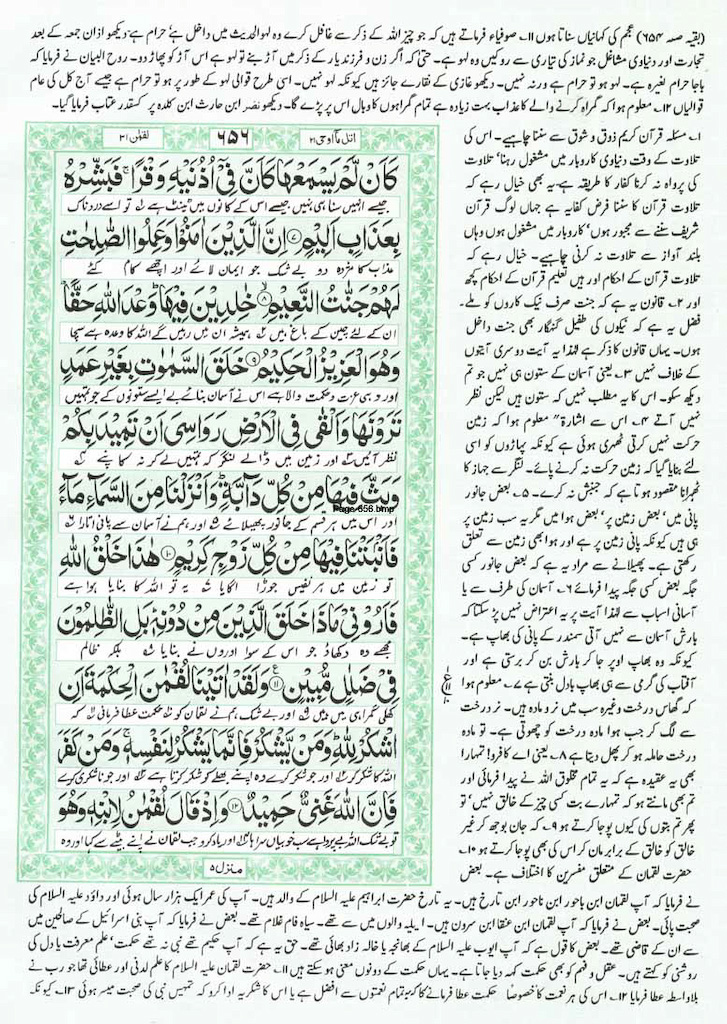 (بقیہ صفہ ۶۵۴) عجم کی کہانیاں سناتا ہوں ۱۱۔ صوفیاء فرماتے ہیں کہ جو چیز اللہ کے ذکر سے غافل کرے وہ لہو الحدیث میں داخل ہے، حرام ہے، دیکھو اذان جمعہ کے بعد
تجارت اور دنیاوی مشاغل جو نماز کی تیاری سے روکیں وہ لہو ہے۔ حتیٰ کہ اگر زن و فرزند یار کے ذکر میں آڑ بنے تو لہو ہے اس آڑ کو پھاڑ دو۔ روح البیان نے فرمایا کہ
باجا حرام لغیرہ ہے۔ لہو ہو تو حرام ہے ورنہ نہیں۔ دیکھو غازی کے نقارے جائز ہیں کیونکہ لہو نہیں۔ اسی طرح قوالی لہو کے طور پر ہو تو حرام ہے جیسے آج کل کی عام
قوالیاں ۱۲۔ معلوم ہوا کہ گمراہ کرنے والے کا عذاب بہت زیادہ ہے تمام گمراہوں کا وبال اس پر پڑے گا۔ دیکھو نضر ابن حارث ابن کلدہ پر کسقدر عتاب فرمایا گیا۔
اتل ماٙ اوحی ۲۱
۶۵۶
لقمٰن ۳۱
كَاَنْ لَّمْ يَسْمَعْهَا كَاَنَّ فِيْٓ اُذُنَيْهِ وَقْرًا ۚ فَبَشِّرْهُ
جیسے انہیں سنا ہی نہیں جیسے اس کے کانوں میں ٹینٹ ہے تو اسے دردناک
بِعَذَابٍ اَلِيْمٍ ۷ اِنَّ الَّذِيْنَ اٰمَنُوْا وَعَمِلُوا الصّٰلِحٰتِ
عذاب کا مژدہ دو بے شک جو ایمان لائے اور اچھے کام کئے
لَهُمْ جَنّٰتُ النَّعِيْمِ ۸ خٰلِدِيْنَ فِيْهَا ۭ وَعْدَ اللّٰهِ حَقًّا ۭ
ان کے لئے چین کے باغ ہیں ہمیشہ ان میں رہیں گے اللہ کا وعدہ ہے سچا
وَهُوَ الْعَزِيْزُ الْحَكِيْمُ ۹ خَلَقَ السَّمٰوٰتِ بِغَيْرِ عَمَدٍ
اور وہی عزت و حکمت والا ہے اس نے آسمان بنائے بے ایسے ستونوں کے جو تمہیں
تَرَوْنَهَا وَاَلْقٰى فِي الْاَرْضِ رَوَاسِيَ اَنْ تَمِيْدَ بِكُمْ
نظر آئیں اور زمین میں ڈالے لنگر کہ تمہیں لے کر نہ کانپے
وَبَثَّ فِيْهَا مِنْ كُلِّ دَآبَّةٍ ۭ وَاَنْزَلْنَا مِنَ السَّمَآءِ مَآءً
Page-656.bmp
اور اس میں ہر قسم کے جانور پھیلائے اور ہم نے آسمان سے پانی اتارا
فَاَنْۢبَتْنَا فِيْهَا مِنْ كُلِّ زَوْجٍ كَرِيْمٍ ۱۰ هٰذَا خَلْقُ اللّٰهِ
تو زمین میں ہر نفیس جوڑا اگایا یہ تو اللہ کا بنایا ہوا ہے
فَاَرُوْنِيْ مَاذَا خَلَقَ الَّذِيْنَ مِنْ دُوْنِهٖ ۭ بَلِ الظّٰلِمُوْنَ
مجھے وہ دکھاؤ جو اس کے سوا اوروں نے بنایا بلکہ ظالم
فِيْ ضَلٰلٍ مُّبِيْنٍ ۱۱ وَلَقَدْ اٰتَيْنَا لُقْمٰنَ الْحِكْمَةَ اَنِ
کھلی گمراہی میں ہیں اور بے شک ہم نے لقمان کو حکمت عطا فرمائی کہ
اشْكُرْ لِلّٰهِ ۭ وَمَنْ يَّشْكُرْ فَاِنَّمَا يَشْكُرُ لِنَفْسِهٖ ۚ وَمَنْ كَفَرَ
اللہ کا شکر کر اور جو شکر کرے وہ اپنے بھلے کو شکر کرتا ہے اور جو ناشکری کرے
فَاِنَّ اللّٰهَ غَنِيٌّ حَمِيْدٌ ۱۲ وَاِذْ قَالَ لُقْمٰنُ لِابْنِهٖ وَهُوَ
تو بے شک اللہ بے پرواہ ہے سب خوبیاں سراہا اور یاد کرو جب لقمان نے اپنے بیٹے سے کہا اور وہ
منزل ۵
۱۔ مسئلہ قرآن کریم ذوق و شوق سے سننا چاہیے۔ اس کی
تلاوت کے وقت دنیاوی کاروبار میں مشغول رہنا، تلاوت
کی پرواہ نہ کرنا کفار کا طریقہ ہے، یہ بھی خیال رہے کہ
تلاوت قرآن کا سننا فرض کفایہ ہے جہاں لوگ قرآن
شریف سننے سے مجبور ہوں، کاروبار میں مشغول ہوں وہاں
بلند آواز سے تلاوت نہ کرنی چاہیے۔ خیال رہے کہ
تلاوت قرآن کے احکام اور ہیں تعلیم قرآن کے احکام کچھ
اور ۲۔ قانون یہ ہے کہ جنت صرف نیک کاروں کو ملے۔
فضل یہ ہے کہ نیکوں کی طفیل گنہگار بھی جنت داخل
ہوں۔ یہاں قانون کا ذکر ہے لہٰذا یہ آیت دوسری آیتوں
کے خلاف نہیں ۳۔ یعنی آسمان کے ستون ہی نہیں جو تم
دیکھ سکو۔ اس کا یہ مطلب نہیں کہ ستون ہیں لیکن نظر
نہیں آتے ۴۔ اس سے اشارۃً معلوم ہوا کہ زمین
حرکت نہیں کرتی ٹھہری ہوئی ہے کیونکہ پہاڑوں کو اسی
لئے بنایا گیا کہ زمین حرکت نہ کرنے پائے۔ لنگر سے جہاز کا
ٹھہرانا مقصود ہوتا ہے کہ جنبش نہ کرے۔ ۵۔ بعض جانور
پانی میں، بعض زمین پر، بعض ہوا میں مگر یہ سب زمین پر
ہی ہیں کیونکہ پانی زمین پر ہے اور ہوا بھی زمین سے تعلق
رکھتی ہے۔ پھیلانے سے مراد یہ ہے کہ بعض جانور کسی
جگہ بعض کسی جگہ پیدا فرمائے ۶۔ آسمان کی طرف سے یا
آسمانی اسباب سے لہٰذا آیت پر یہ اعتراض نہیں پڑ سکتا کہ
بارش آسمان سے نہیں آتی سمندر کے پانی کی بھاپ ہے۔
کیونکہ وہ بھاپ اوپر جا کر بارش بن کر برستی ہے اور
آفتاب کی گرمی سے ہی بھاپ بادل بنتی ہے ۷۔ معلوم ہوا
کہ گھاس درخت وغیرہ سب میں نر و مادہ ہیں۔ نر درخت
سے لگ کر جب ہوا مادہ درخت کو چھوتی ہے۔ تو مادہ
درخت حاملہ ہو کر پھل دیتا ہے ۸۔ یعنی اے کافرو! تمہارا
بھی یہ عقیدہ ہے کہ یہ تمام مخلوق اللہ نے پیدا فرمائی اور
تم بھی مانتے ہو کہ تمہارے بت کسی چیز کے خالق نہیں، تو
پھر تم بتوں کی کیوں پوجا کرتے ہو ۹۔ کہ جان بوجھ کر غیر
خالق کو خالق کے برابر مان کر اس کی بھی پوجا کرتے ہو ۱۰۔
حضرت لقمان کے متعلق مفسرین کا اختلاف ہے۔ بعض
نے فرمایا کہ آپ لقمان ابن باعور ابن ناحور ابن تارخ ہیں۔ یہ تارخ حضرت ابراہیم علیہ السلام کے والد ہیں۔ آپ کی عمر ایک ہزار سال ہوئی اور داؤد علیہ السلام کی
صحبت پائی۔ بعض نے فرمایا کہ آپ لقمان ابن عنقا ابن سرون ہیں۔ ایلہ والوں میں سے تھے۔ سیاہ فام غلام تھے۔ بعض نے فرمایا کہ آپ بنی اسرائیل کے صالحین میں
سے ان کے قاضی تھے۔ بعض کا قول ہے کہ آپ ایوب علیہ السلام کے بھانجہ یا خالہ زاد بھائی تھے۔ حق یہ ہے کہ آپ حکیم تھے نبی نہ تھے حکمت، علم معرفت یا دل کی
روشنی کو کہتے ہیں۔ عقل و فہم کو بھی حکمت کہہ دیا جاتا ہے۔ یہاں حکمت کے دونوں معنی ہو سکتے ہیں ۱۱۔ حضرت لقمان علیہ السلام کا علم لدنی اور عطائی تھا جو رب نے
بلاواسطہ عطا فرمایا ۱۲۔ اس کی ہر نعمت کا خصوصاً حکمت عطا فرمانے کا کہ یہ تمام نعمتوں سے افضل ہے یا اس کا شکریہ ادا کرو کہ تمہیں نبی کی صحبت میسر ہوئی ۱۳۔ کیونکہ